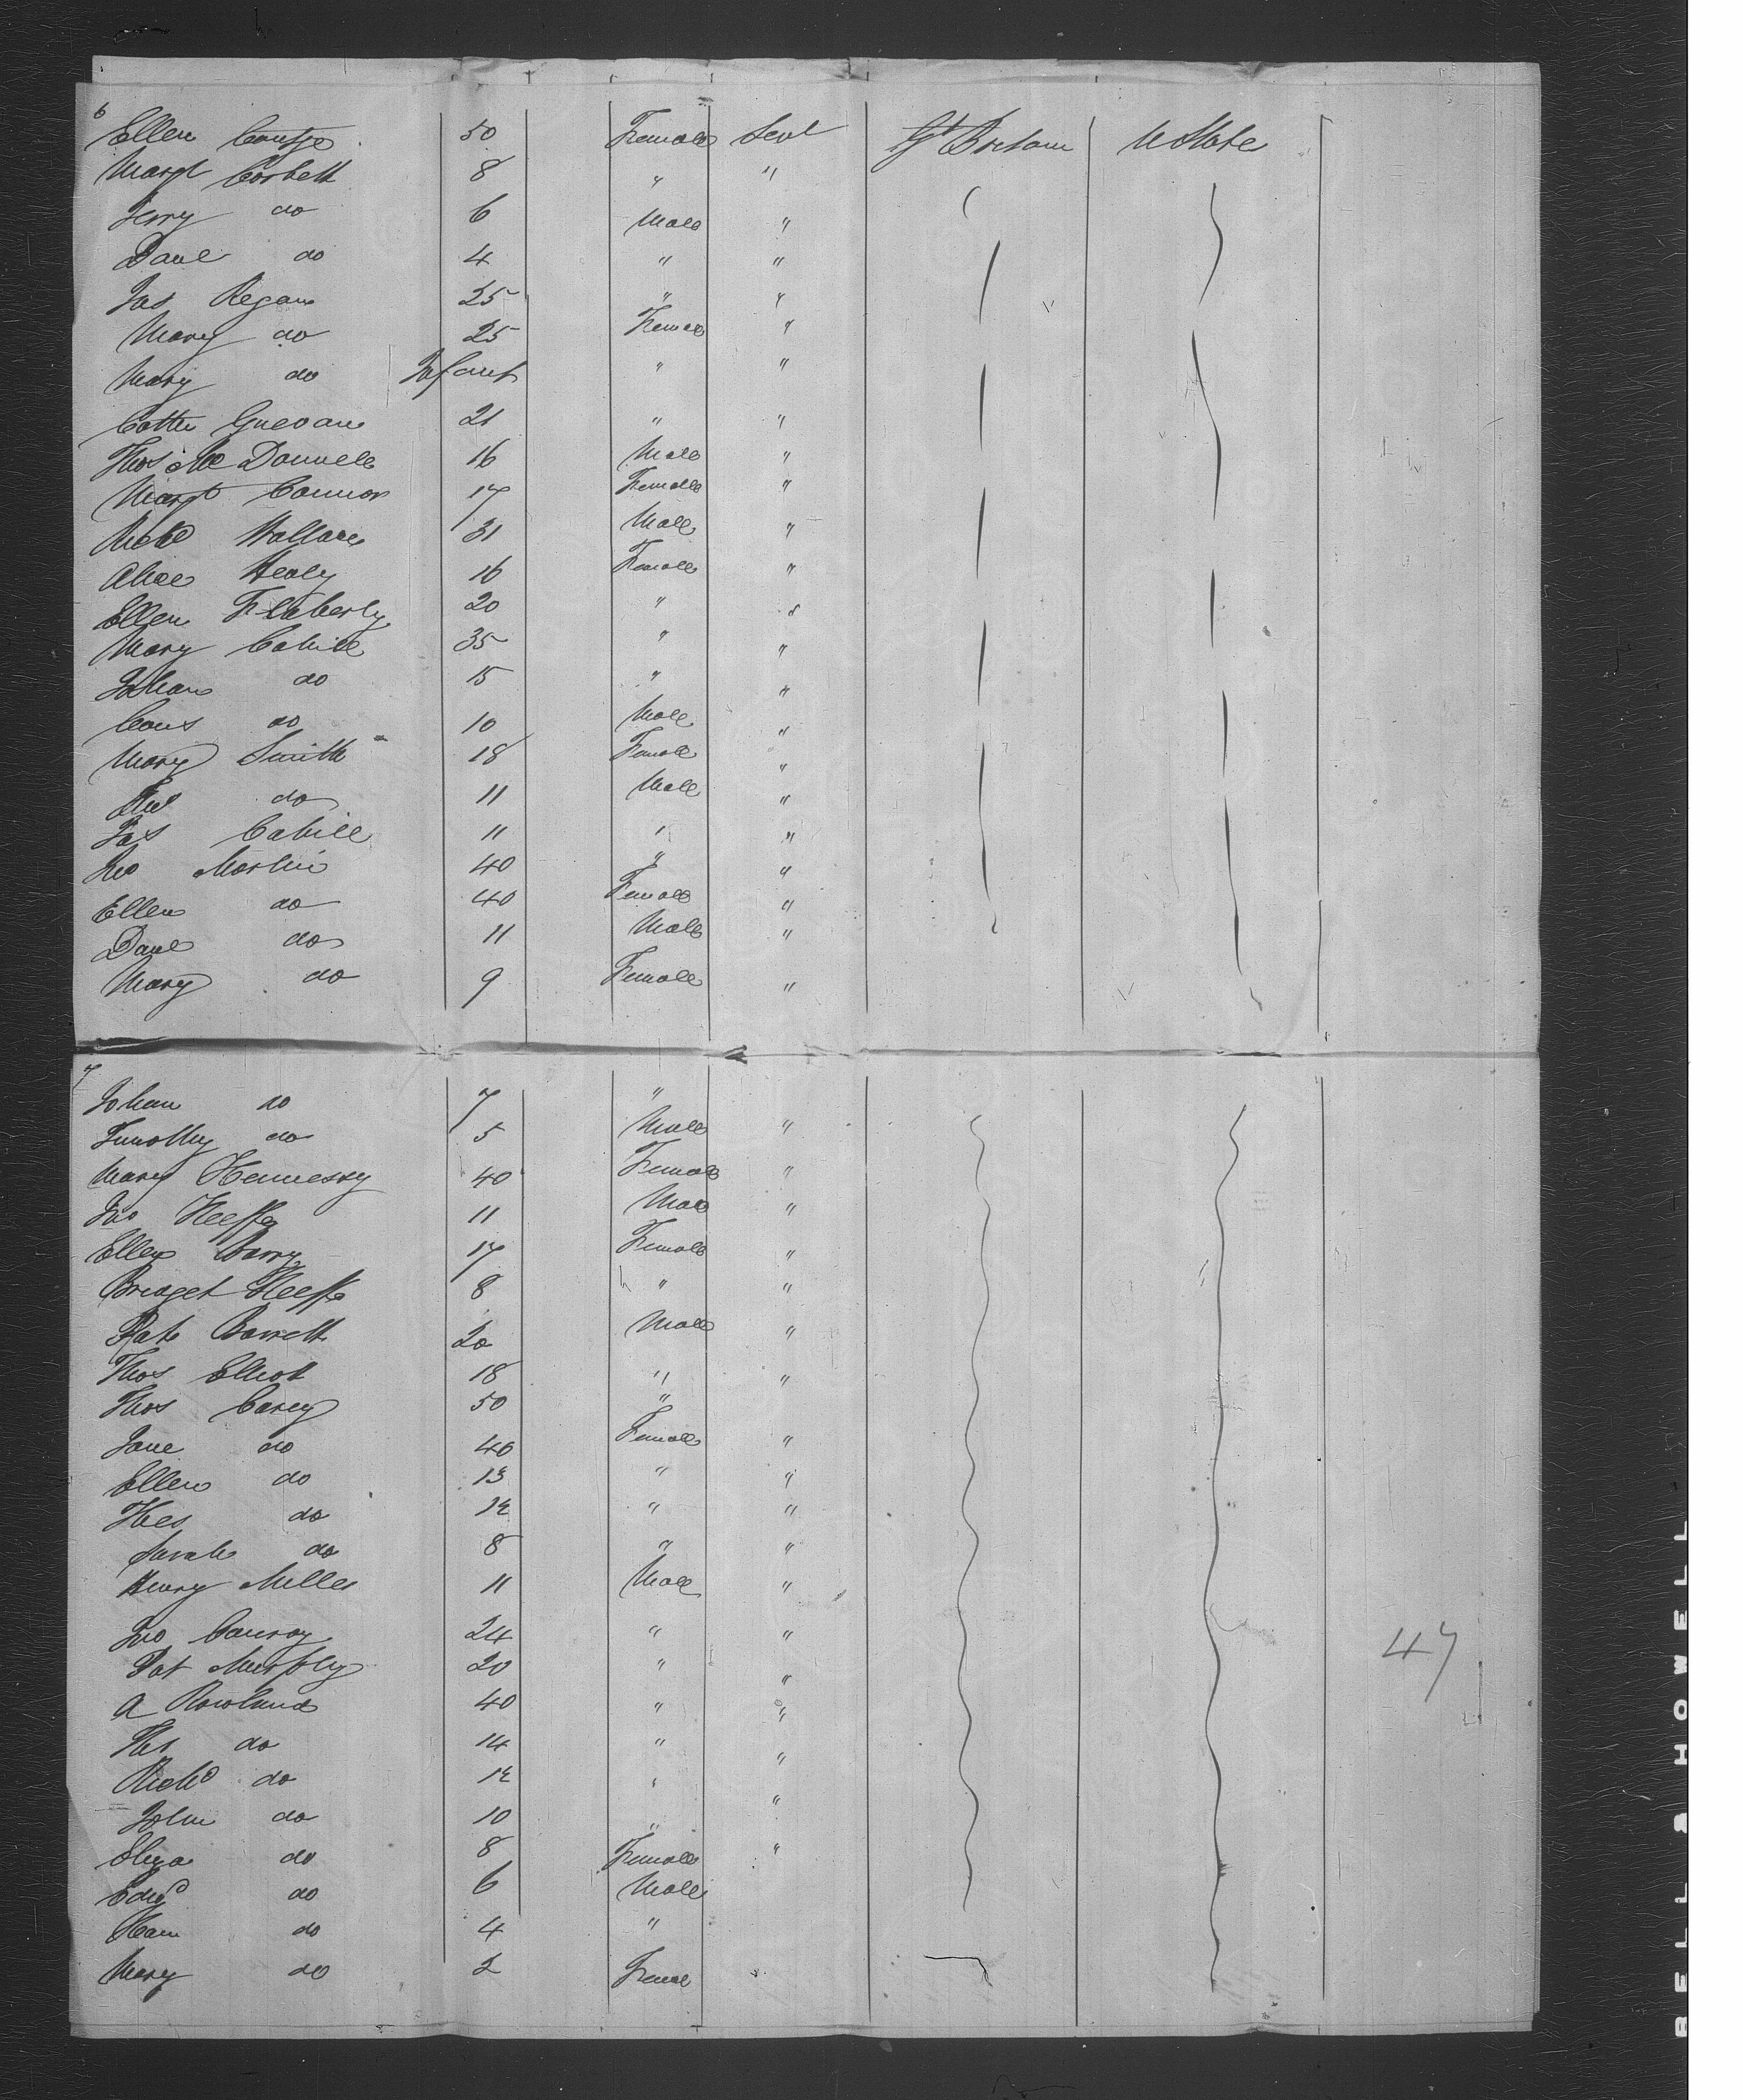 6
Ellen 50 Female Servt Gt Britain U State
Margt Corbett 8 " "
Jerry do 6 Male "
Danl do 4 " "
Jas Regan 25 " "
Mary do 25 Female "
Mary do Infant " "
Cathe 21 " "
Thos Mc Donnell 16 Male "
Margt Connor 17 Female "
Wallace 31 Male "
Alice Healy 16 Female "
Ellen Flaherty 20 " "
Mary Cahill 35 " "
Johan do 15 " "
Cons do 10 Male "
Mary Smith 18 Female "
do 11 Male "
Cahill 11 " "
Jno Martin 40 " "
Ellen do 40 Female "
Danl do 11 Male "
Mary do 9 Female "
7
Johan do 7 "
Timothy do 5 Male "
Mary Hennessy 40 Female "
Jno Keeffe 11 Male "
Ellen Barry 17 Female "
Bridget Keeffe 8 " "
Patk Barrett 20 Male "
Thos Elliott 18 " "
Thos Carey 50 "
Jane do 40 Female "
Ellen do 13 " "
do 12 " "
Sarah do 8 " "
Henry Miller 11 Male "
Jno Conroy 24 " "
Pat Murphy 20 " "
A Rowland 40 " "
do 14 " "
Richd do 12 " "
John do 10 "
Eliza do 8 Female "
Edwd do 6 Male
do 4 "
Mary do 2 Female
47
BELL & HOWELL